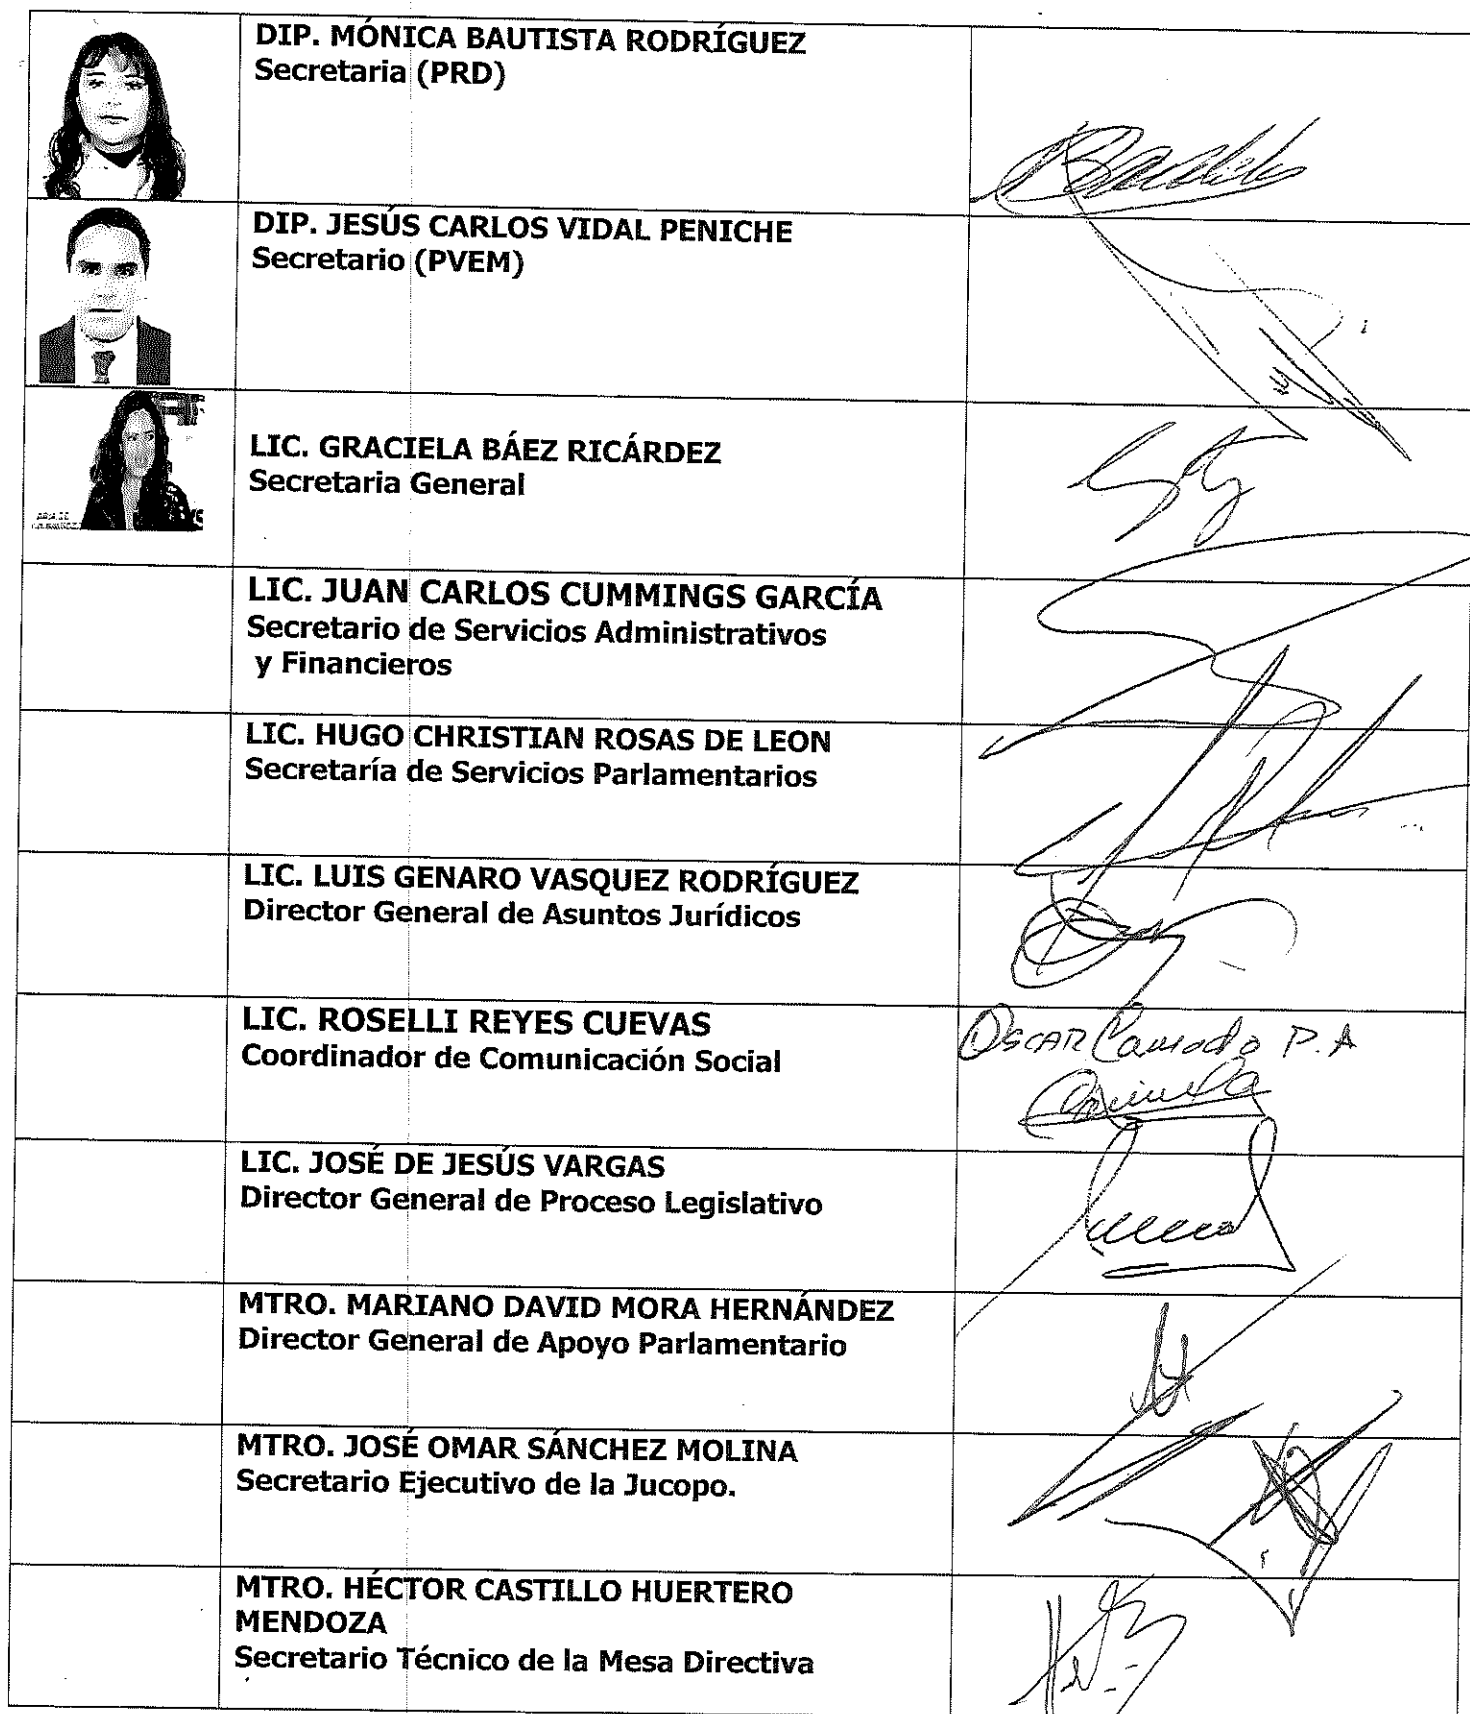 DIP. MÓNICA BAUTISTA RODRÍGUEZ
Secretaria (PRD)
DIP. JESÚS CARLOS VIDAL PENICHE
Secretario (PVEM)
LIC. GRACIELA BÁEZ RICÁRDEZ
Secretaria General
LIC. JUAN CARLOS CUMMINGS GARCÍA
Secretario de Servicios Administrativos
y Financieros
LIC. HUGO CHRISTIAN ROSAS DE LEON
Secretaría de Servicios Parlamentarios
LIC. LUIS GENARO VASQUEZ RODRÍGUEZ
Director General de Asuntos Jurídicos
LIC. ROSELLI REYES CUEVAS
Coordinador de Comunicación Social
OSCAR P.A
LIC. JOSÉ DE JESÚS VARGAS
Director General de Proceso Legislativo
MTRO. MARIANO DAVID MORA HERNÁNDEZ
Director General de Apoyo Parlamentario
MTRO. JOSÉ OMAR SÁNCHEZ MOLINA
Secretario Ejecutivo de la Jucopo.
MTRO. HÉCTOR CASTILLO HUERTERO
MENDOZA
Secretario Técnico de la Mesa Directiva